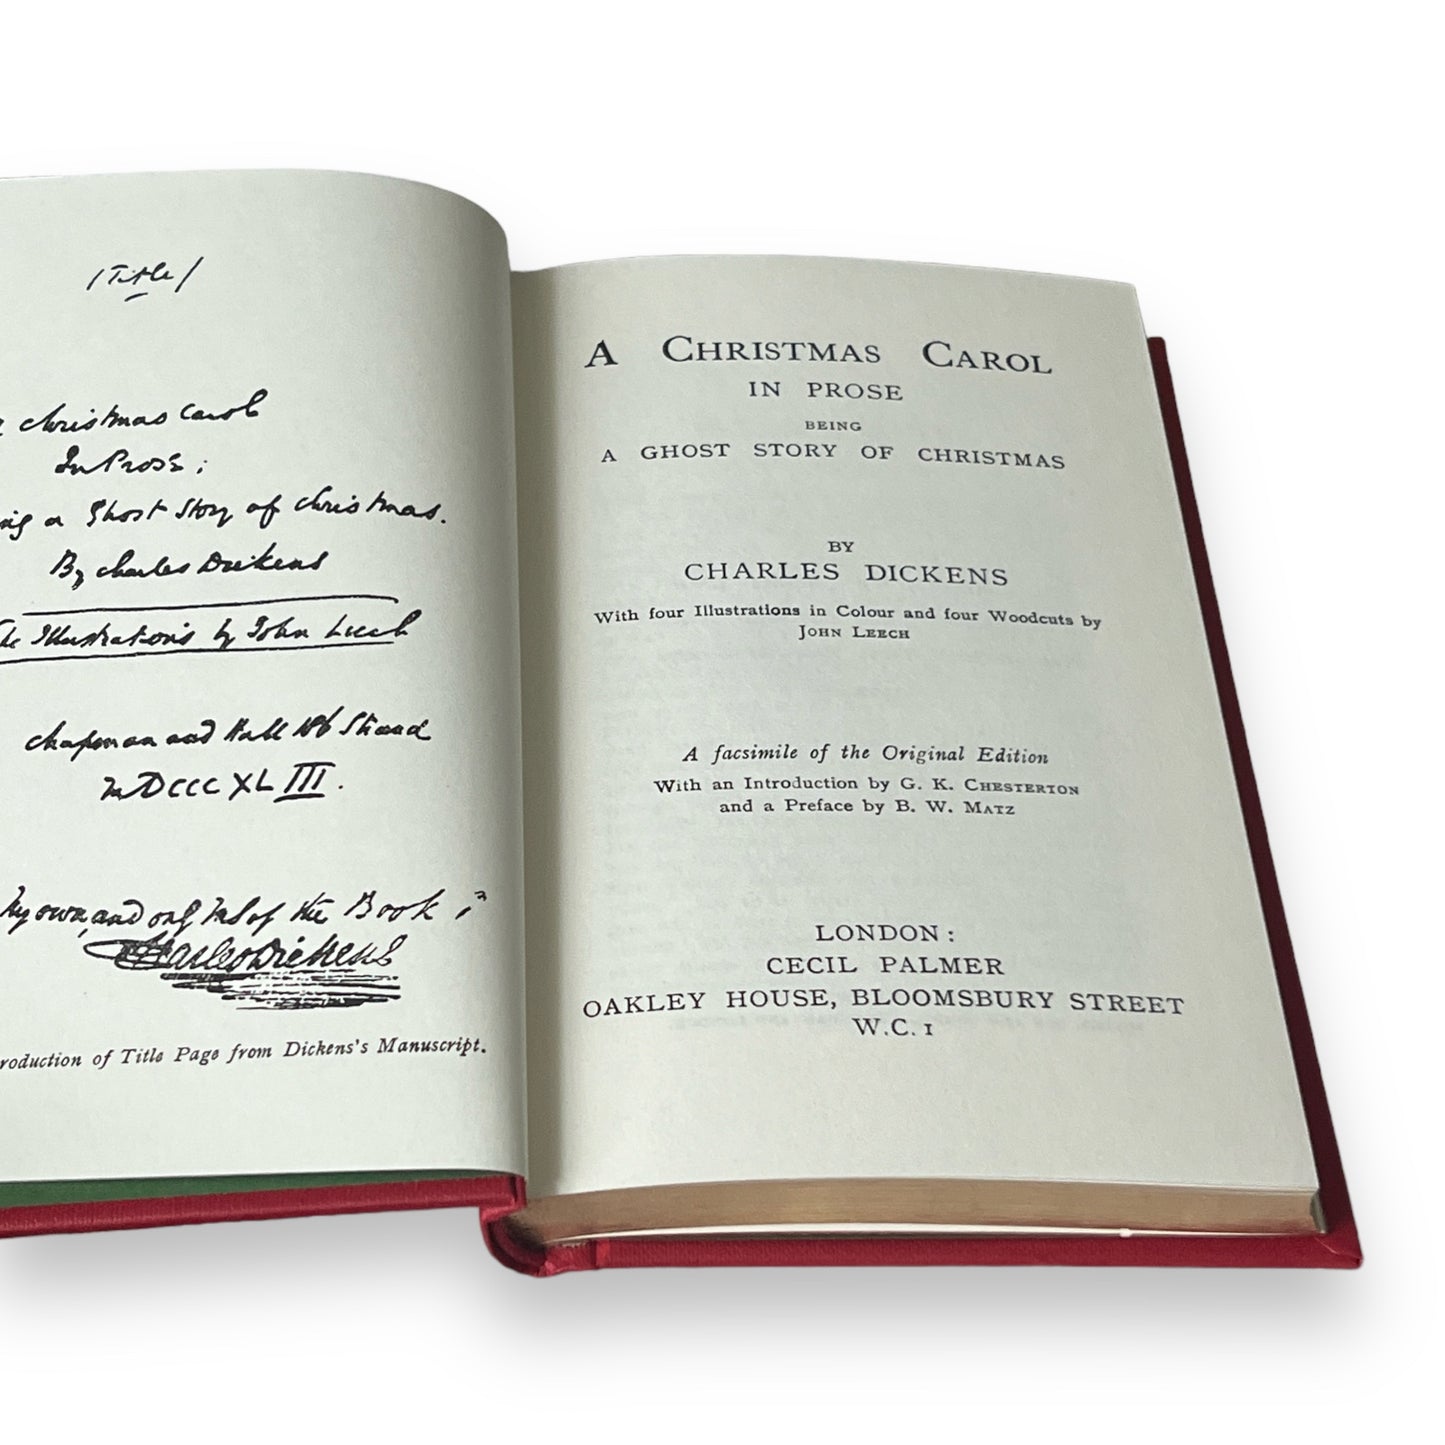 /Title/
Christmas Carol
In Prose;
a Ghost Story of Christmas.
By Charles Dickens
The Illustrations by John Leech
Chapman and Hall 186 Strand
MDCCCXLIII.
My own, and only MS of the Book
Charles Dickens
roduction of Title Page from Dickens's Manuscript.
A CHRISTMAS CAROL
IN PROSE
BEING
A GHOST STORY OF CHRISTMAS
BY
CHARLES DICKENS
With four Illustrations in Colour and four Woodcuts by
JOHN LEECH
A facsimile of the Original Edition
With an Introduction by G. K. CHESTERTON
and a Preface by B. W. MATZ
LONDON:
CECIL PALMER
OAKLEY HOUSE, BLOOMSBURY STREET
W.C. 1